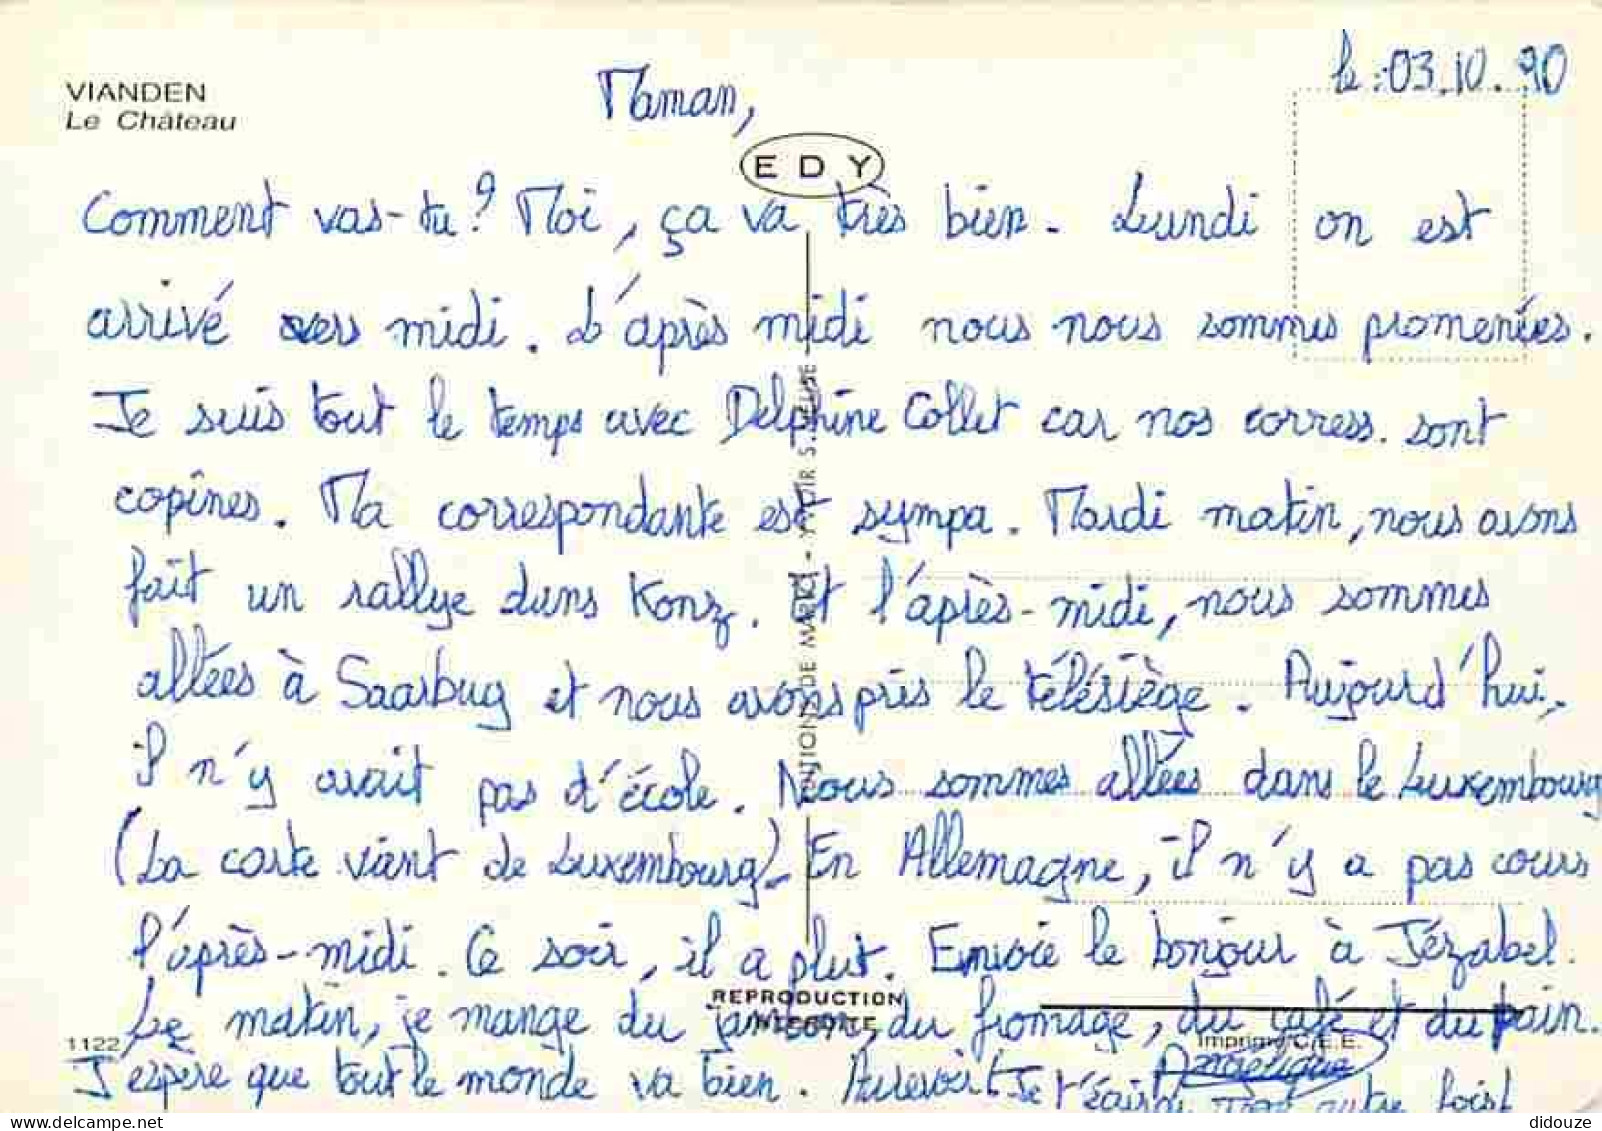 le : 03.10.90
VIANDEN
Le Château
Maman,
EDY
Comment vas-tu ? Moi, ça va très bien. Lundi on est
arrivé vers midi. L'après midi nous nous sommes promenées.
Je suis tout le temps avec Delphine Collet car nos corress. sont
copines. Ma correspondante est sympa. Mardi matin, nous avons
fait un rallye dans Konz. Et l'après-midi, nous sommes
allées à Saarbug et nous avons pris le télésiège. Aujourd'hui,
il n'y avait pas d'école. Nous sommes allées dans le Luxembourg
(La carte vient de Luxembourg). En Allemagne, il n'y a pas cours
l'après-midi. Ce soir, il a plut. Envoie le bonjour à Jézabel.
REPRODUCTION
Le matin, je mange du jambon, du fromage, du café et du pain.
1122
Imprimé C.E.E.
J'espère que tout le monde va bien. Aurevoir! Je t'écirai une autre fois!
Angélique
didouze